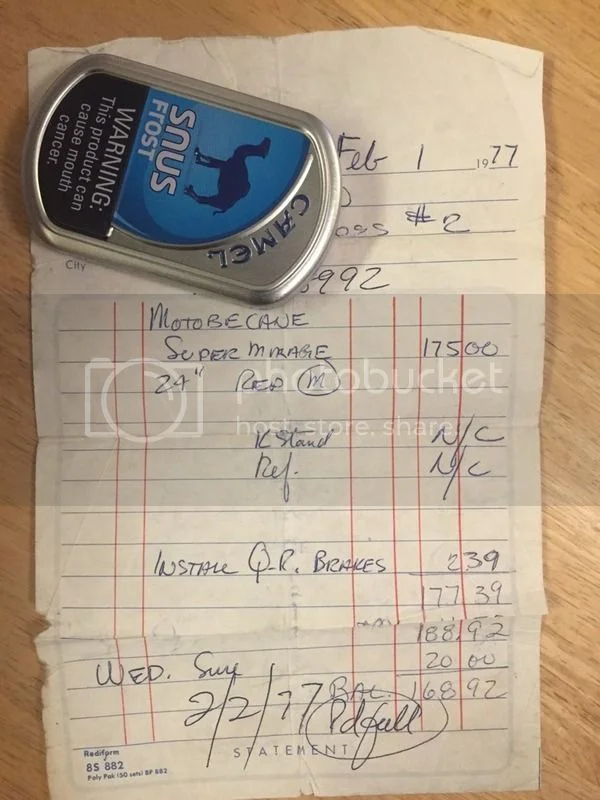 CAMEL
SNUS
FROST
WARNING:
This product can
cause mouth
cancer.
Feb 1 1977
# 2
City
992
MOTOBECANE
SUPER MIRAGE 175 00
24" RED M
K Stand N/C
Ref. N/C
INSTALL Q.R. BRAKES 2 39
177 39
188.92
20 00
WED. BAL. 168 92
2/2/77 Pd full
STATEMENT
Rediform
8S 882
Poly Pak (50 sets) 8P 882
photobucket
host. store. share.